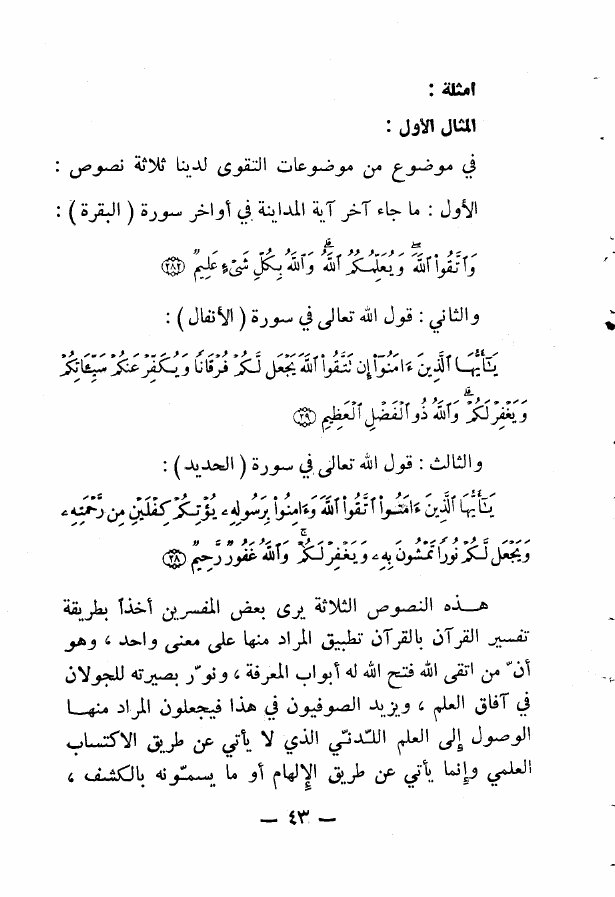 امثلة :
المثال الأول :
في موضوع من موضوعات التقوى لدينا ثلاثة نصوص :
الأول : ما جاء آخر آية المداينة في أواخر سورة ( البقرة ) :
وَاتَّقُوا اللَّهَ ۖ وَيُعَلِّمُكُمُ اللَّهُ ۗ وَاللَّهُ بِكُلِّ شَيْءٍ عَلِيمٌ ﴿٢٨٢﴾
والثاني : قول الله تعالى في سورة ( الأنفال ) :
يَٰٓأَيُّهَا ٱلَّذِينَ ءَامَنُوٓا۟ إِن تَتَّقُوا۟ ٱللَّهَ يَجْعَل لَّكُمْ فُرْقَانًا وَيُكَفِّرْ عَنكُمْ سَيِّـَٔاتِكُمْ
وَيَغْفِرْ لَكُمْ ۗ وَٱللَّهُ ذُو ٱلْفَضْلِ ٱلْعَظِيمِ ﴿٢٩﴾
والثالث : قول الله تعالى في سورة ( الحديد ) :
يَٰٓأَيُّهَا ٱلَّذِينَ ءَامَنُوا۟ ٱتَّقُوا۟ ٱللَّهَ وَءَامِنُوا۟ بِرَسُولِهِۦ يُؤْتِكُمْ كِفْلَيْنِ مِن رَّحْمَتِهِۦ
وَيَجْعَل لَّكُمْ نُورًا تَمْشُونَ بِهِۦ وَيَغْفِرْ لَكُمْ ۚ وَٱللَّهُ غَفُورٌ رَّحِيمٌ ﴿٢٨﴾
هـذه النصوص الثلاثة يرى بعض المفسرين أخذاً بطريقة
تفسير القرآن بالقرآن تطبيق المراد منها على معنى واحد ، وهو
أنّ من اتقى الله فتح الله له أبواب المعرفة ، ونوّر بصيرته للجولان
في آفاق العلم ، ويزيد الصوفيون في هذا فيجعلون المراد منهـا
الوصول إلى العلم اللّدنّي الذي لا يأتي عن طريق الاكتساب
العلمي وإنما يأتي عن طريق الإلهام أو ما يسمّونه بالكشف ،
— ٤٣ —